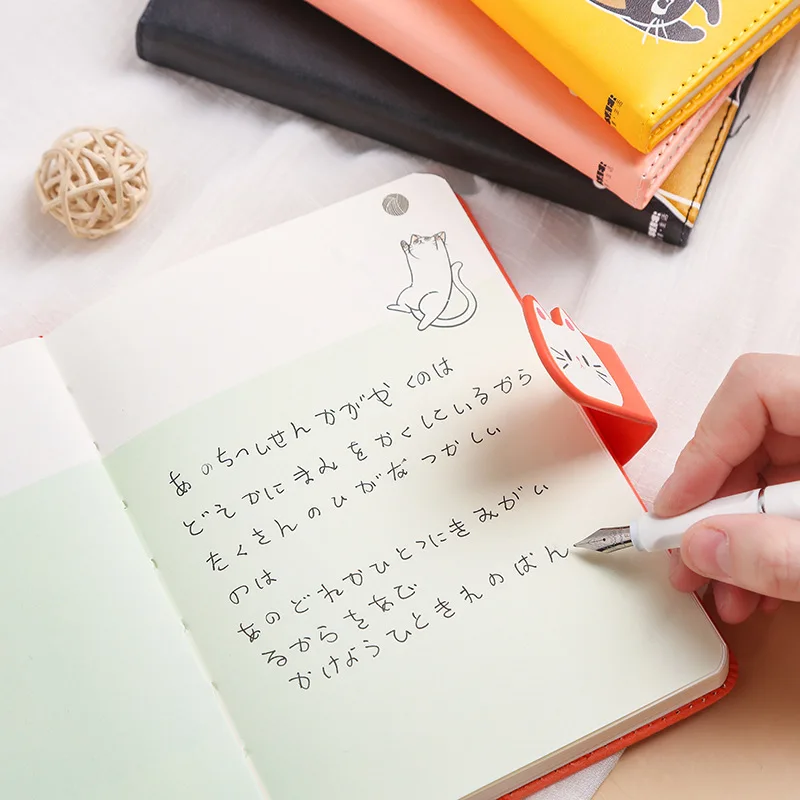 あのちっしせんかがやくのは
どえかにまみをかくしているから
たくさんのひがなつかしい
のは
あのどれかひとつにきみがい
るからさあで
かけようひときれのぱん